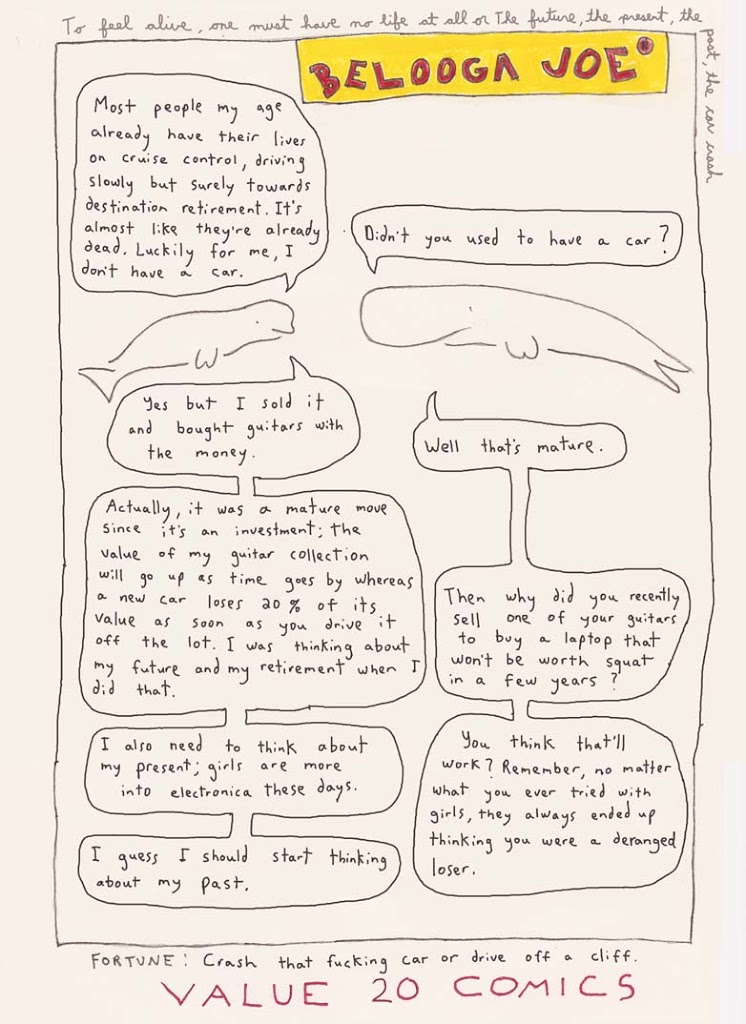 To feel alive, one must have no life at all or The future, the present, the
past, the car crash
BELOOGA JOE
Most people my age
already have their lives
on cruise control, driving
slowly but surely towards
destination retirement. It's
almost like they're already
dead. Luckily for me, I
don't have a car.
Didn't you used to have a car?
Yes but I sold it
and bought guitars with
the money.
Well that's mature.
Actually, it was a mature move
since it's an investment; the
value of my guitar collection
will go up as time goes by whereas
a new car loses 20% of its
value as soon as you drive it
off the lot. I was thinking about
my future and my retirement when I
did that.
Then why did you recently
sell one of your guitars
to buy a laptop that
won't be worth squat
in a few years?
I also need to think about
my present; girls are more
into electronica these days.
You think that'll
work? Remember, no matter
what you ever tried with
girls, they always ended up
thinking you were a deranged
loser.
I guess I should start thinking
about my past.
FORTUNE: Crash that fucking car or drive off a cliff.
VALUE 20 COMICS